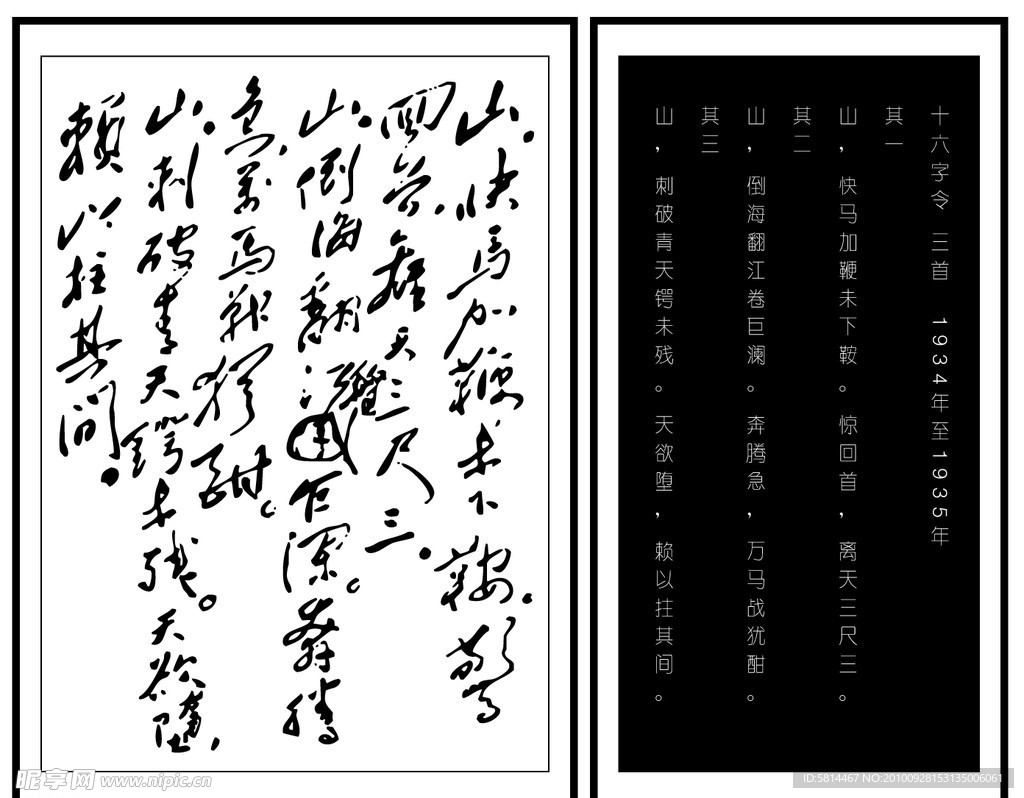 山。快馬加鞭未下鞍。驚
回首，離天三尺三。
山。倒海翻江捲巨瀾。奔騰
急，萬馬戰猶酣。
山。刺破青天鍔未殘。天欲墮，
賴以拄其間。
十六字令 三首 1934年至1935年
其一
山，快马加鞭未下鞍。惊回首，离天三尺三。
其二
山，倒海翻江卷巨澜。奔腾急，万马战犹酣。
其三
山，刺破青天锷未残。天欲堕，赖以拄其间。
昵享网 www.nipic.cn
ID:5814467 NO:20100928153135006061